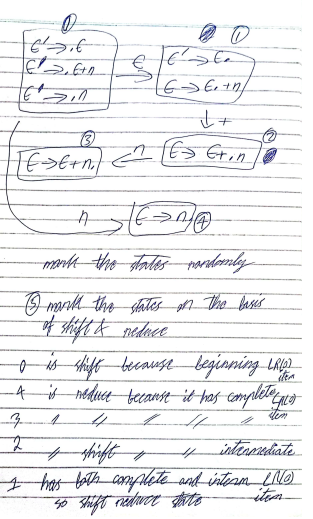 0
E' → .E
E' → .E+n
E' → .n
E
1
E' → E.
E → E.+n
+
3
E → E+n.
n
2
E → E+.n
n
E → n.
4
mark the states randomly
5 mark the states on the basis
of shift & reduce
0 is shift because beginning LR(0)
item
4 is reduce because it has complete LR(0)
item
3 " " " " "
2 " shift " " intermediate
1 has both complete and interm LR(0)
so shift reduce state item